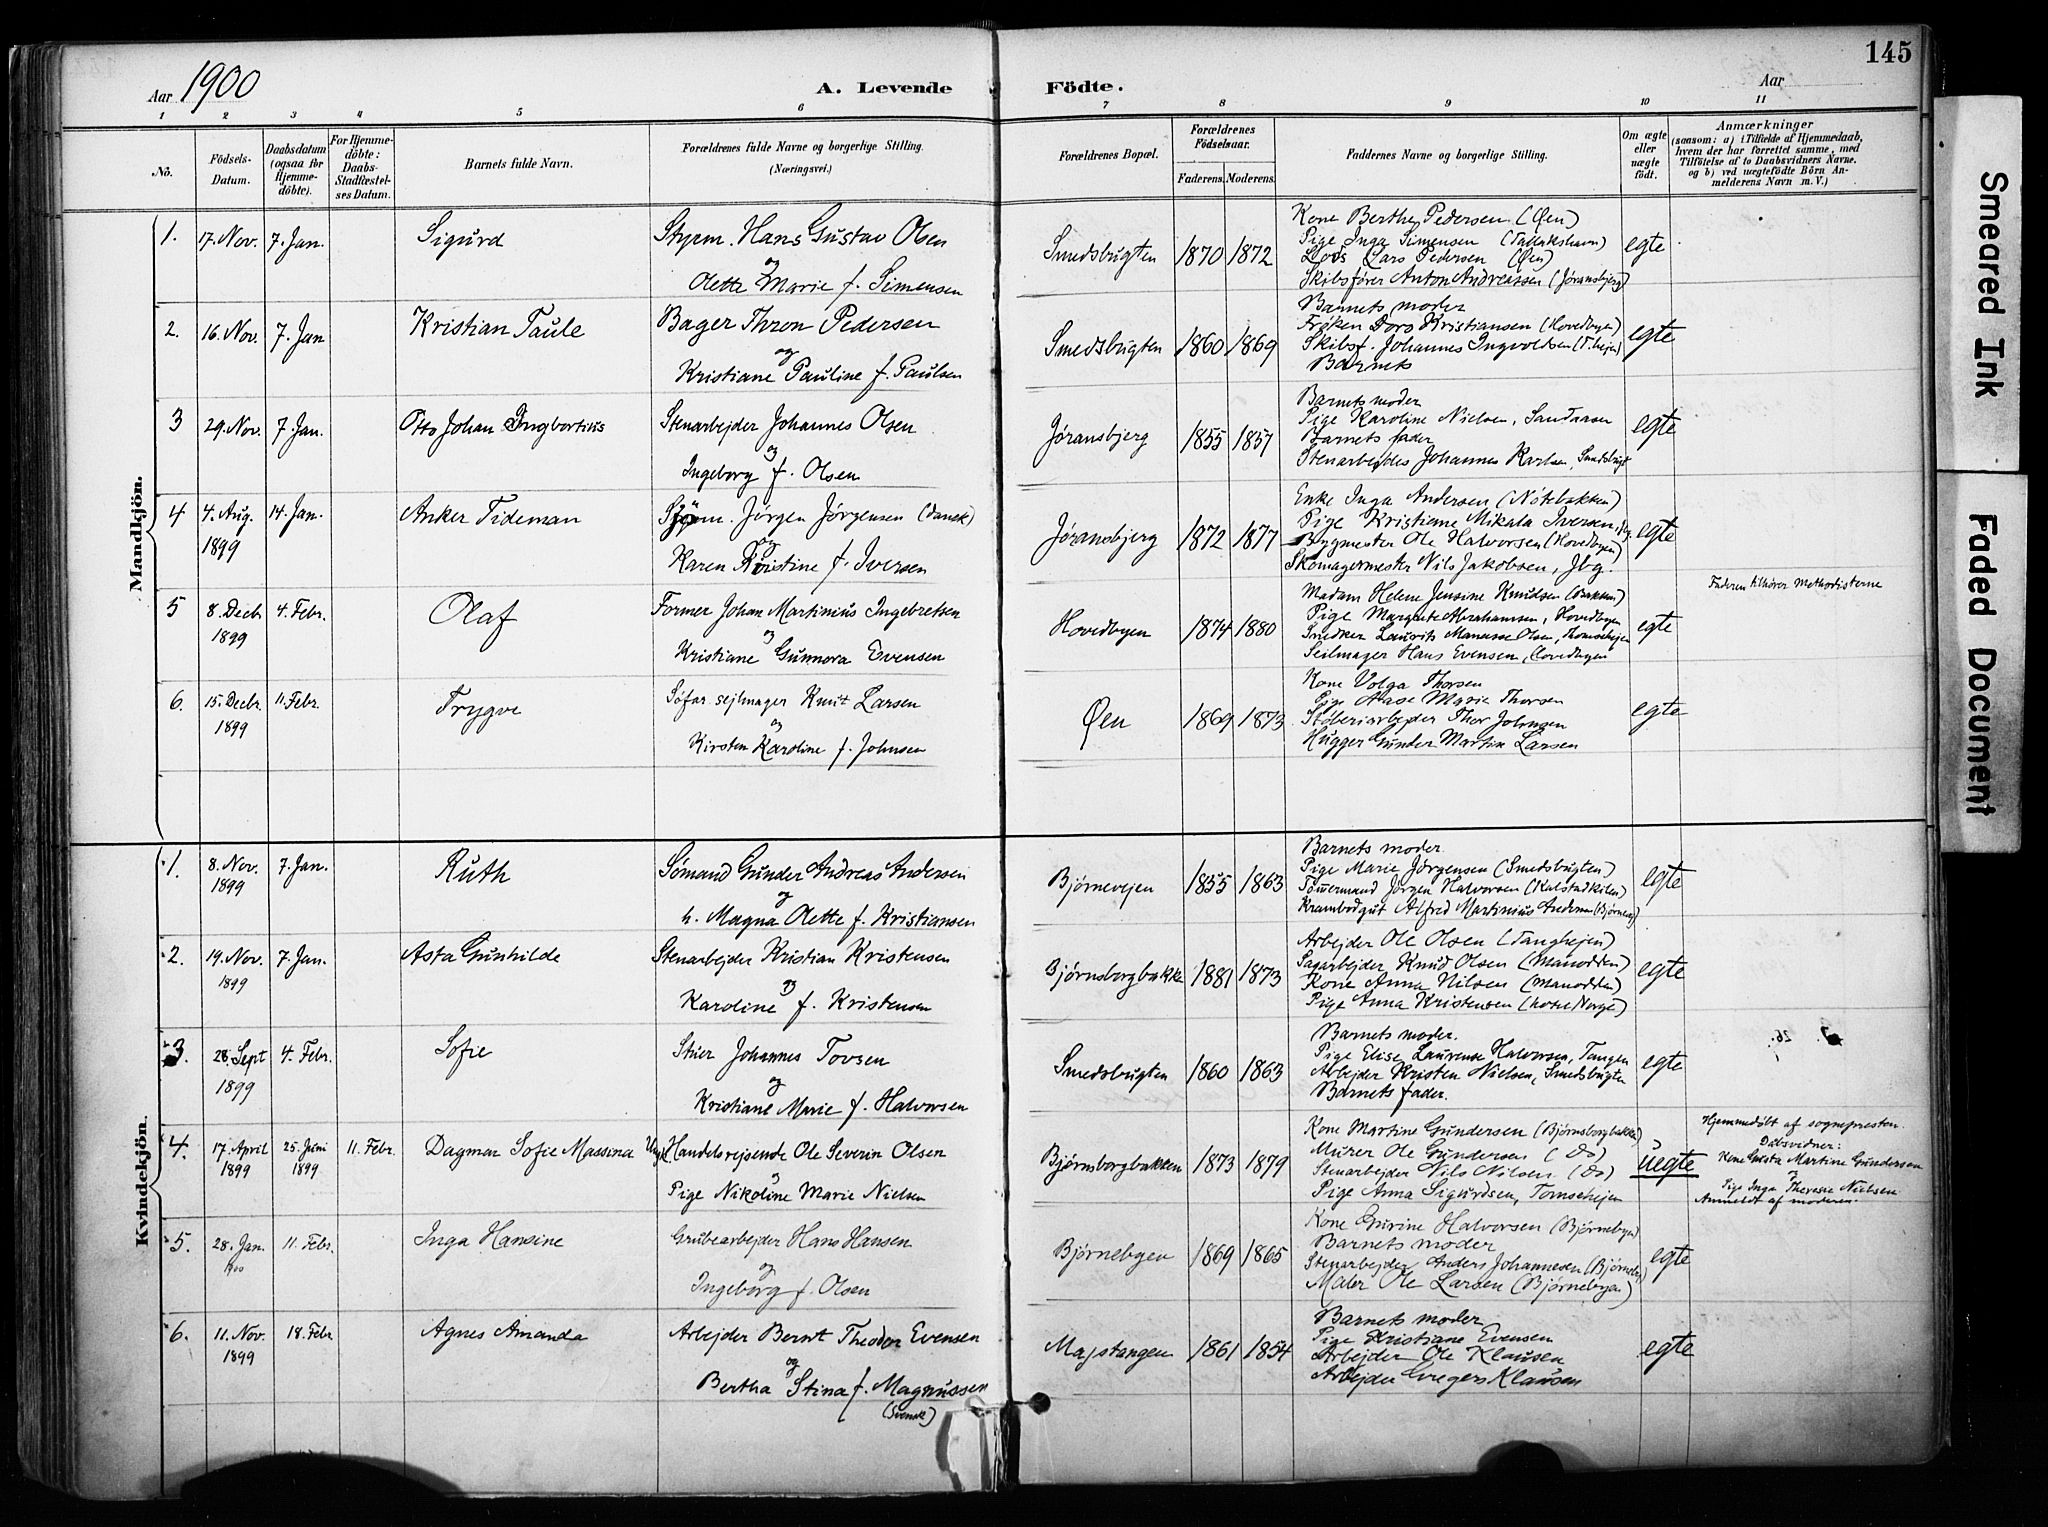 145
Aar 1900
A. Levende Födte.
Aar
1 2 3 4 5 6 7 8 9 10 11
No.
Födsels-Datum.
Daabsdatum (ogsaa for Hjemmedöbte).
For Hjemmedöbte: Daabs-Stadfæstelses Datum.
Barnets fulde Navn.
Forældrenes fulde Navne og borgerlige Stilling.
(Næringsvei.)
Forældrenes Bopæl.
Forældrenes Födselsaar.
Faderens. Moderens.
Faddernes Navne og borgerlige Stilling.
Om ægte eller uægte födt.
Anmærkninger
(saasom: a) i Tilfælde af Hjemmedaab, hvem der har forrettet samme, med Tilföielse af to Daabsvidners Navne. og b) ved uægtefödte Börn Anmelderens Navn m. V.)
Mandkjön.
1. 17. Nov. 7. Jan. Sigurd
Styrm. Hans Gustav Olsen
og
Olette Marie f. Simensen
Smedsbugten 1870 1872
Kone Berthe Pedersen (Øen)
Pige Inga Simensen (Tallakshavn)
Lods Lars Pedersen (Øen)
Skibsfører Anton Andreassen (Jøransbjerg)
egte
2. 16. Nov. 7. Jan Kristian Paule
Bager Thron Pedersen
og
Kristiane Pauline f. Paulsen
Smedsbugten 1860 1869
Barnets moder
Frøken Doro Kristiansen (Hovedbyen)
Skibsf. Johannes Ingvoldsen (T.hejen)
Barnets
egte
3 29. Nov. 7. Jan. Otto Johan Ingbortius
Stenarbejder Johannes Olsen
og
Ingeborg f. Olsen
Jøransbjerg 1855 1857
Barnets moder
Pige Karoline Nielsen, Sandaasen
Barnets fader
Stenarbejdes Johannes Karlsen, Smedsbugt
egte
4 4. Aug. 1899 14. Jan. Anker Tideman
Sjøm. Jørgen Jørgensen (Dansk)
og
Karen Kristine f. Iversen
Jøransbjerg 1872 1877
Enke Inga Andersen (Nøtebakken)
Pige Kristiane Mikala Iversen, Jbg.
Bygmester Ole Halvorsen (Hovedbyen)
Skomagermester Nils Jakobsen, Jbg.
egte
5 8. Decb. 1899 4. Febr. Olaf
Former Johan Martinius Ingebretsen
og
Kristiane Gunnora Evensen
Hovedbyen 1874 1880
Madam Helene Jensine Knudsen (Bakken)
Pige Margrete Abrahamsen, Hovedbyen
Snedker Laurits Manasse Olsen, Thomsehejen
Seilmager Hans Evensen, Hovedbyen
egte
Faderen tilhører Methodisterne
6. 15. Decbr. 1899 11. Febr. Trygve
Søfar. sejlmager Knut Larsen
og
Kirsten Karoline f. Johnsen
Øen 1869 1873
Kone Volga Thorsen
Pige Aase Marie Thorsen
Støberiarbejder Thor Johnsen
Hugger Gunder Martin Larsen
egte
Kvindekjön.
1. 8. Nov. 1899 7. Jan. Ruth
Sømand Gunder Andreas Andersen
og
h. Magna Olette f. Kristiansen
Bjørnevejen 1855 1863
Barnets moder.
Pige Marie Jørgensen (Smedsbugten)
Tømmermand Jørgen Halvorsen (Kalstadkilen)
Krambodgut Alfred Martinius Andersen (Bjørnevej)
egte
2. 19. Nov. 1899 7. Jan. Asta Gunhilde
Stenarbejder Kristian Kristensen
og
Karoline f. Kristensen
Bjørnsborgbakke 1881 1873
Arbejder Ole Olsen (Tanghejen)
Sagarbejder Knud Olsen (Manodden)
Kone Anna Nilsen (Manodden)
Pige Anna Kristensen (hotel Norge)
egte
3. 28. Sept 1899 4. Febr. Sofie
Stuer Johannes Tovsen
og
Kristiane Marie f. Halvorsen
Smedsbugten 1860 1863
Barnets moder.
Pige Elise Laurense Halvorsen, Tangen
Arbejder Kristen Nielsen, Smedsbugten
Barnets fader.
egte
4. 17. April 1899 25. Juni 1899 11. Febr. Dagmar Sofie Massina
Ungk. Handelsrejsende Ole Severin Olsen
og
Pige Nikoline Marie Nielsen
Bjørnsborgbakken 1873 1879
Kone Martine Gundersen (Bjørnsborgbakken)
Murer Ole Gundersen (do)
Stenarbejder Nils Nilsen (do)
Pige Anna Sigurdsen, Tomsehejen
uegte
Hjemmedøbt af sognepresten.
Dåbsvidner:
Kone Gusta Martine Gundersen
og
Pige Inga Theresie Nielsen
Anmeldt af moderen.
5. 28. Jan. 1900 11. Febr. Inga Hansine
Grubearbejder Hans Hansen
og
Ingeborg f. Olsen
Bjørnebyen 1869 1865
Kone Gurine Halvorsen (Bjørnebyen)
Barnets moder
Stenarbejder Anders Johannesen (Bjørneby)
Maler Ole Larsen (Bjørnebyen)
egte
6. 11. Nov. 1899 18. Febr Agnes Amanda
Arbejder Bernt Theodor Evensen
og
Bertha Stina f. Magnussen
(Svensk)
Majstangen 1861 1854
Barnets moder
Pige Kristiane Evensen
Arbejder Ole Klausen
Arbejder Gregers Klausen
egte
Smeared Ink
Faded Document